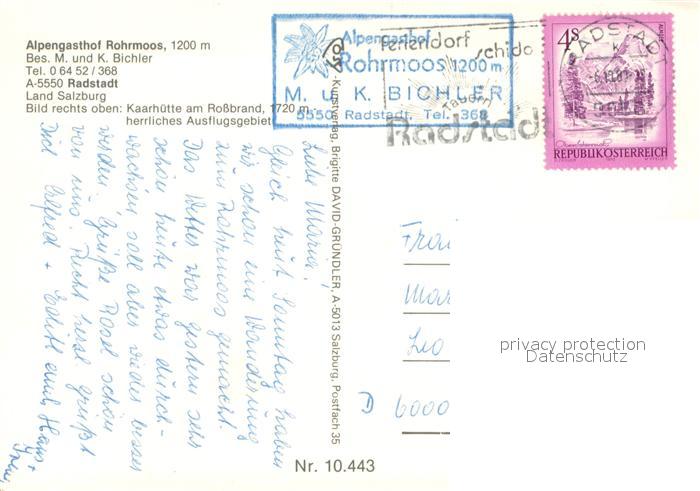 Alpengasthof Rohrmoos, 1200 m
Bes. M. und K. Bichler
Tel. 0 64 52 / 368
A-5550 Radstadt
Land Salzburg
Bild rechts oben: Kaarhütte am Roßbrand, 1720 m
herrliches Ausflugsgebiet
Alpengasthof
Rohrmoos 1200 m
M. u. K. BICHLER
5550 Radstadt, Tel. 368
Feriendorf
schido
Tauern
Radstadt
RADSTADT
4S
REPUBLIK ÖSTERREICH
Kunstverlag, Brigitte DAVID-GRÜNDLER, A-5013 Salzburg, Postfach 35
Liebe Maria!
Gleich heut Sonntag haben
wir schon eine Wanderung
zum Rohrmoos gemacht.
Das Wetter war gestern sehr
schön heute etwas durch-
wachsen soll aber wieder besser
werden. Grüße Rosel schön
von uns. Recht herzl. grüßt
Dich Alfred + Edith auch Hans +
Frau
Mar
Leo
D 6000
privacy protection
Datenschutz
Nr. 10.443